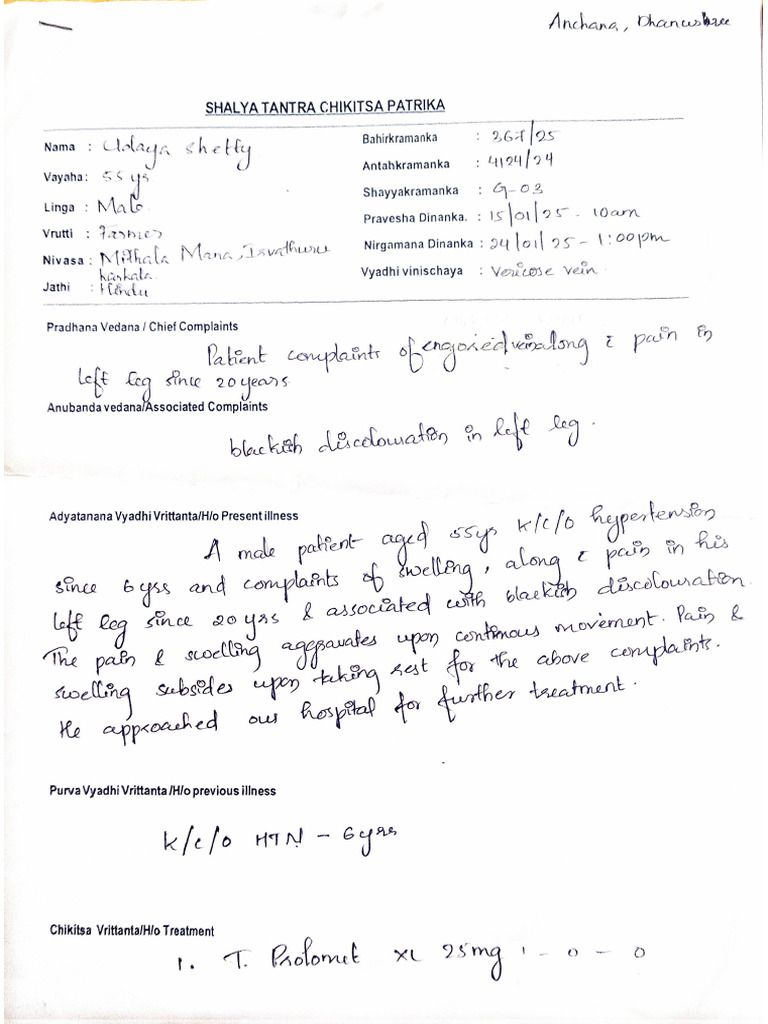 Anchana, Dhanushree
SHALYA TANTRA CHIKITSA PATRIKA
Nama : Udaya Shetty
Vayaha: 55 ys
Linga : Male
Vrutti : Farmer
Nivasa : Mithala Mana, Irvathuru
karkala
Jathi : Hindu
Bahirkramanka : 367/25
Antahkramanka : 4124/24
Shayyakramanka : G-03
Pravesha Dinanka. : 15/01/25 - 10am
Nirgamana Dinanka : 24/01/25 - 1:00pm
Vyadhi vinischaya : Vericose vein
Pradhana Vedana / Chief Complaints
Patient complaints of engoried vein along c pain in
left leg since 20 years
Anubanda vedana/Associated Complaints
blackish discolouration in left leg.
Adyatanana Vyadhi Vrittanta/H/o Present illness
A male patient aged 55ys k/c/o hypertension
since 6yrs and complaints of swelling, along c pain in his
left leg since 20 yrs & associated with blackish discolouration.
The pain & swelling aggravates upon continous movement. Pain &
swelling subsides upon taking rest for the above complaints.
He approached our hospital for further treatment.
Purva Vyadhi Vrittanta /H/o previous illness
k/c/o HTN - 6yrs
Chikitsa Vrittanta/H/o Treatment
1. T. Prolomet XL 25mg 1 - 0 - 0